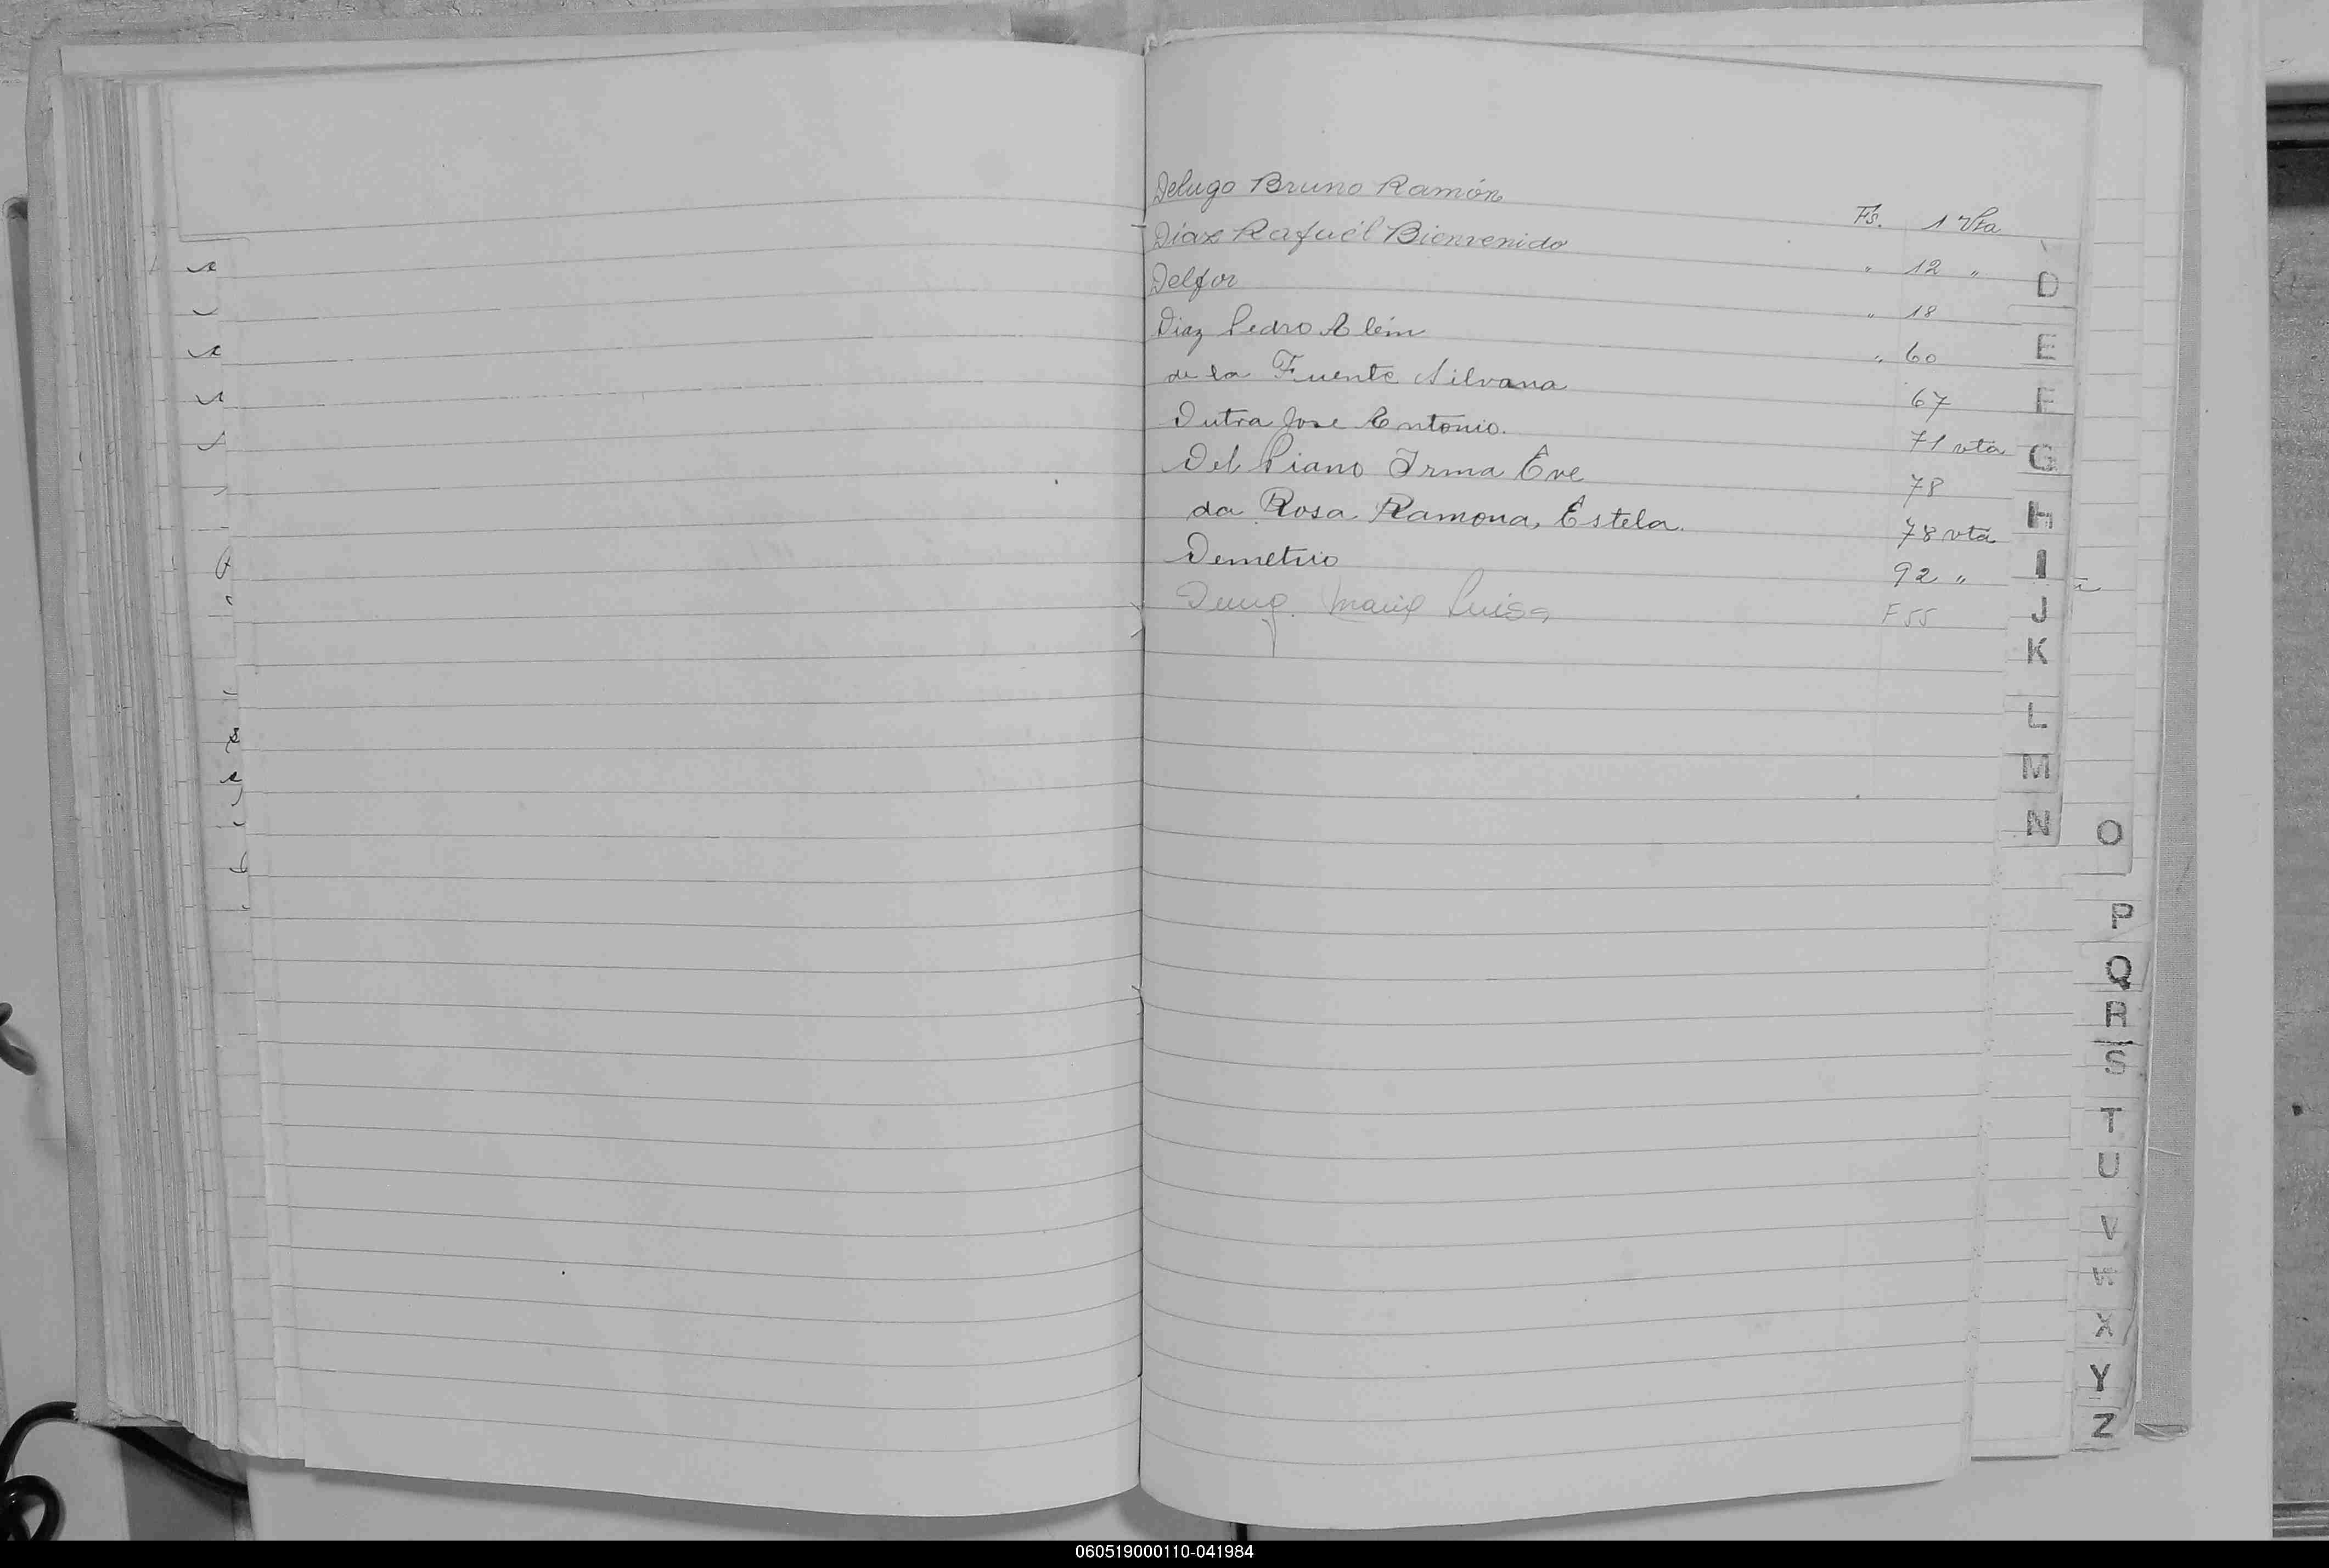 Delugo Bruno Ramón Fs. 1 Vta
Diaz Rafaél Bienvenido " 12 "
Delfor " 18
Diaz Pedro Alem " 60
de la Fuente Silvana 67
Dutra Jose Antonio. 71 vta
Del Piano Irma Eve 78
da Rosa Ramona, Estela. 78 vta
Demetrio 92 "
Maria Luisa F 55
D
E
F
G
H
I
J
K
L
M
N
O
P
Q
R
S
T
U
V
W
X
Y
Z
060519000110-041984